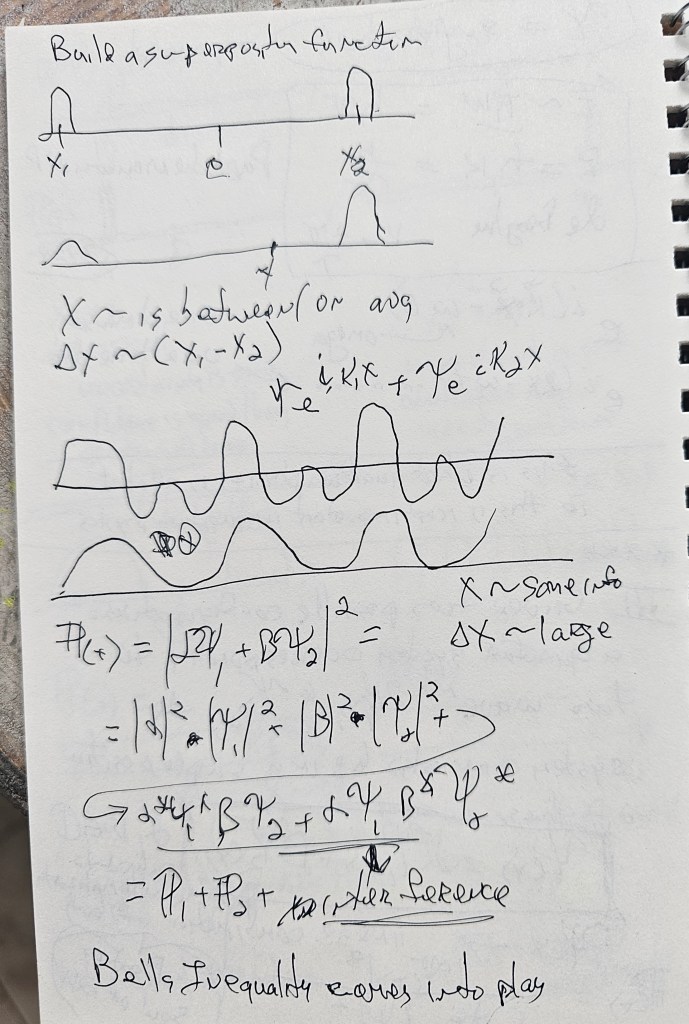 Build a superposition function
X₁ 0 X₂
x
X ~ is between (on avg
ΔX ~ (X₁-X₂)
ψe^{iK₁x} + ψe^{iK₂x}
X ~ some info
ΔX ~ large
ℙ(x) = |αψ₁ + βψ₂|² =
= |α|² • |ψ₁|² + |β|² • |ψ₂|² +
→ α*ψ₁*βψ₂ + αψ₁β*ψ₂*
= ℙ₁ + ℙ₂ + interference
Bells Inequality comes into play